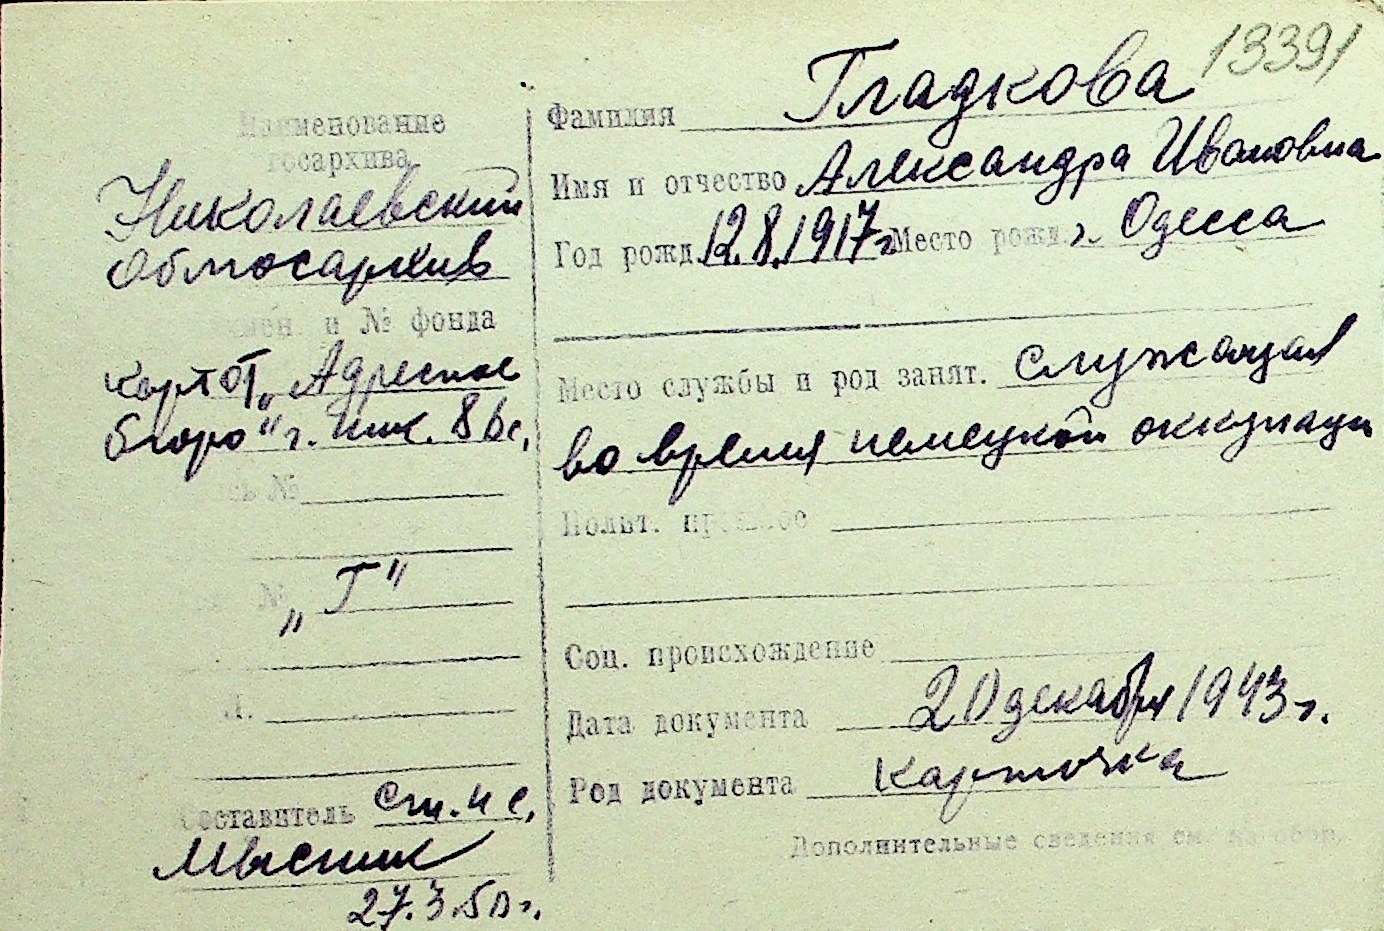 13391
Наименование
госархива
Николаевский
Облгосархив
и № фонда
картот. „Адресное
бюро" г. Ник.
№
№ „Г"
Составитель ст. н. с.
27.3.50 г.
Фамилия Гладкова
Имя и отчество Александра Ивановна
Год рожд. 12.8.1917 г. Место рожд. г. Одесса
Место службы и род занят. служащая
во время немецкой оккупации
Полит. прошлое
Соц. происхождение
Дата документа 20 декабря 1943 г.
Род документа карточка
Дополнительные сведения см. на обор.